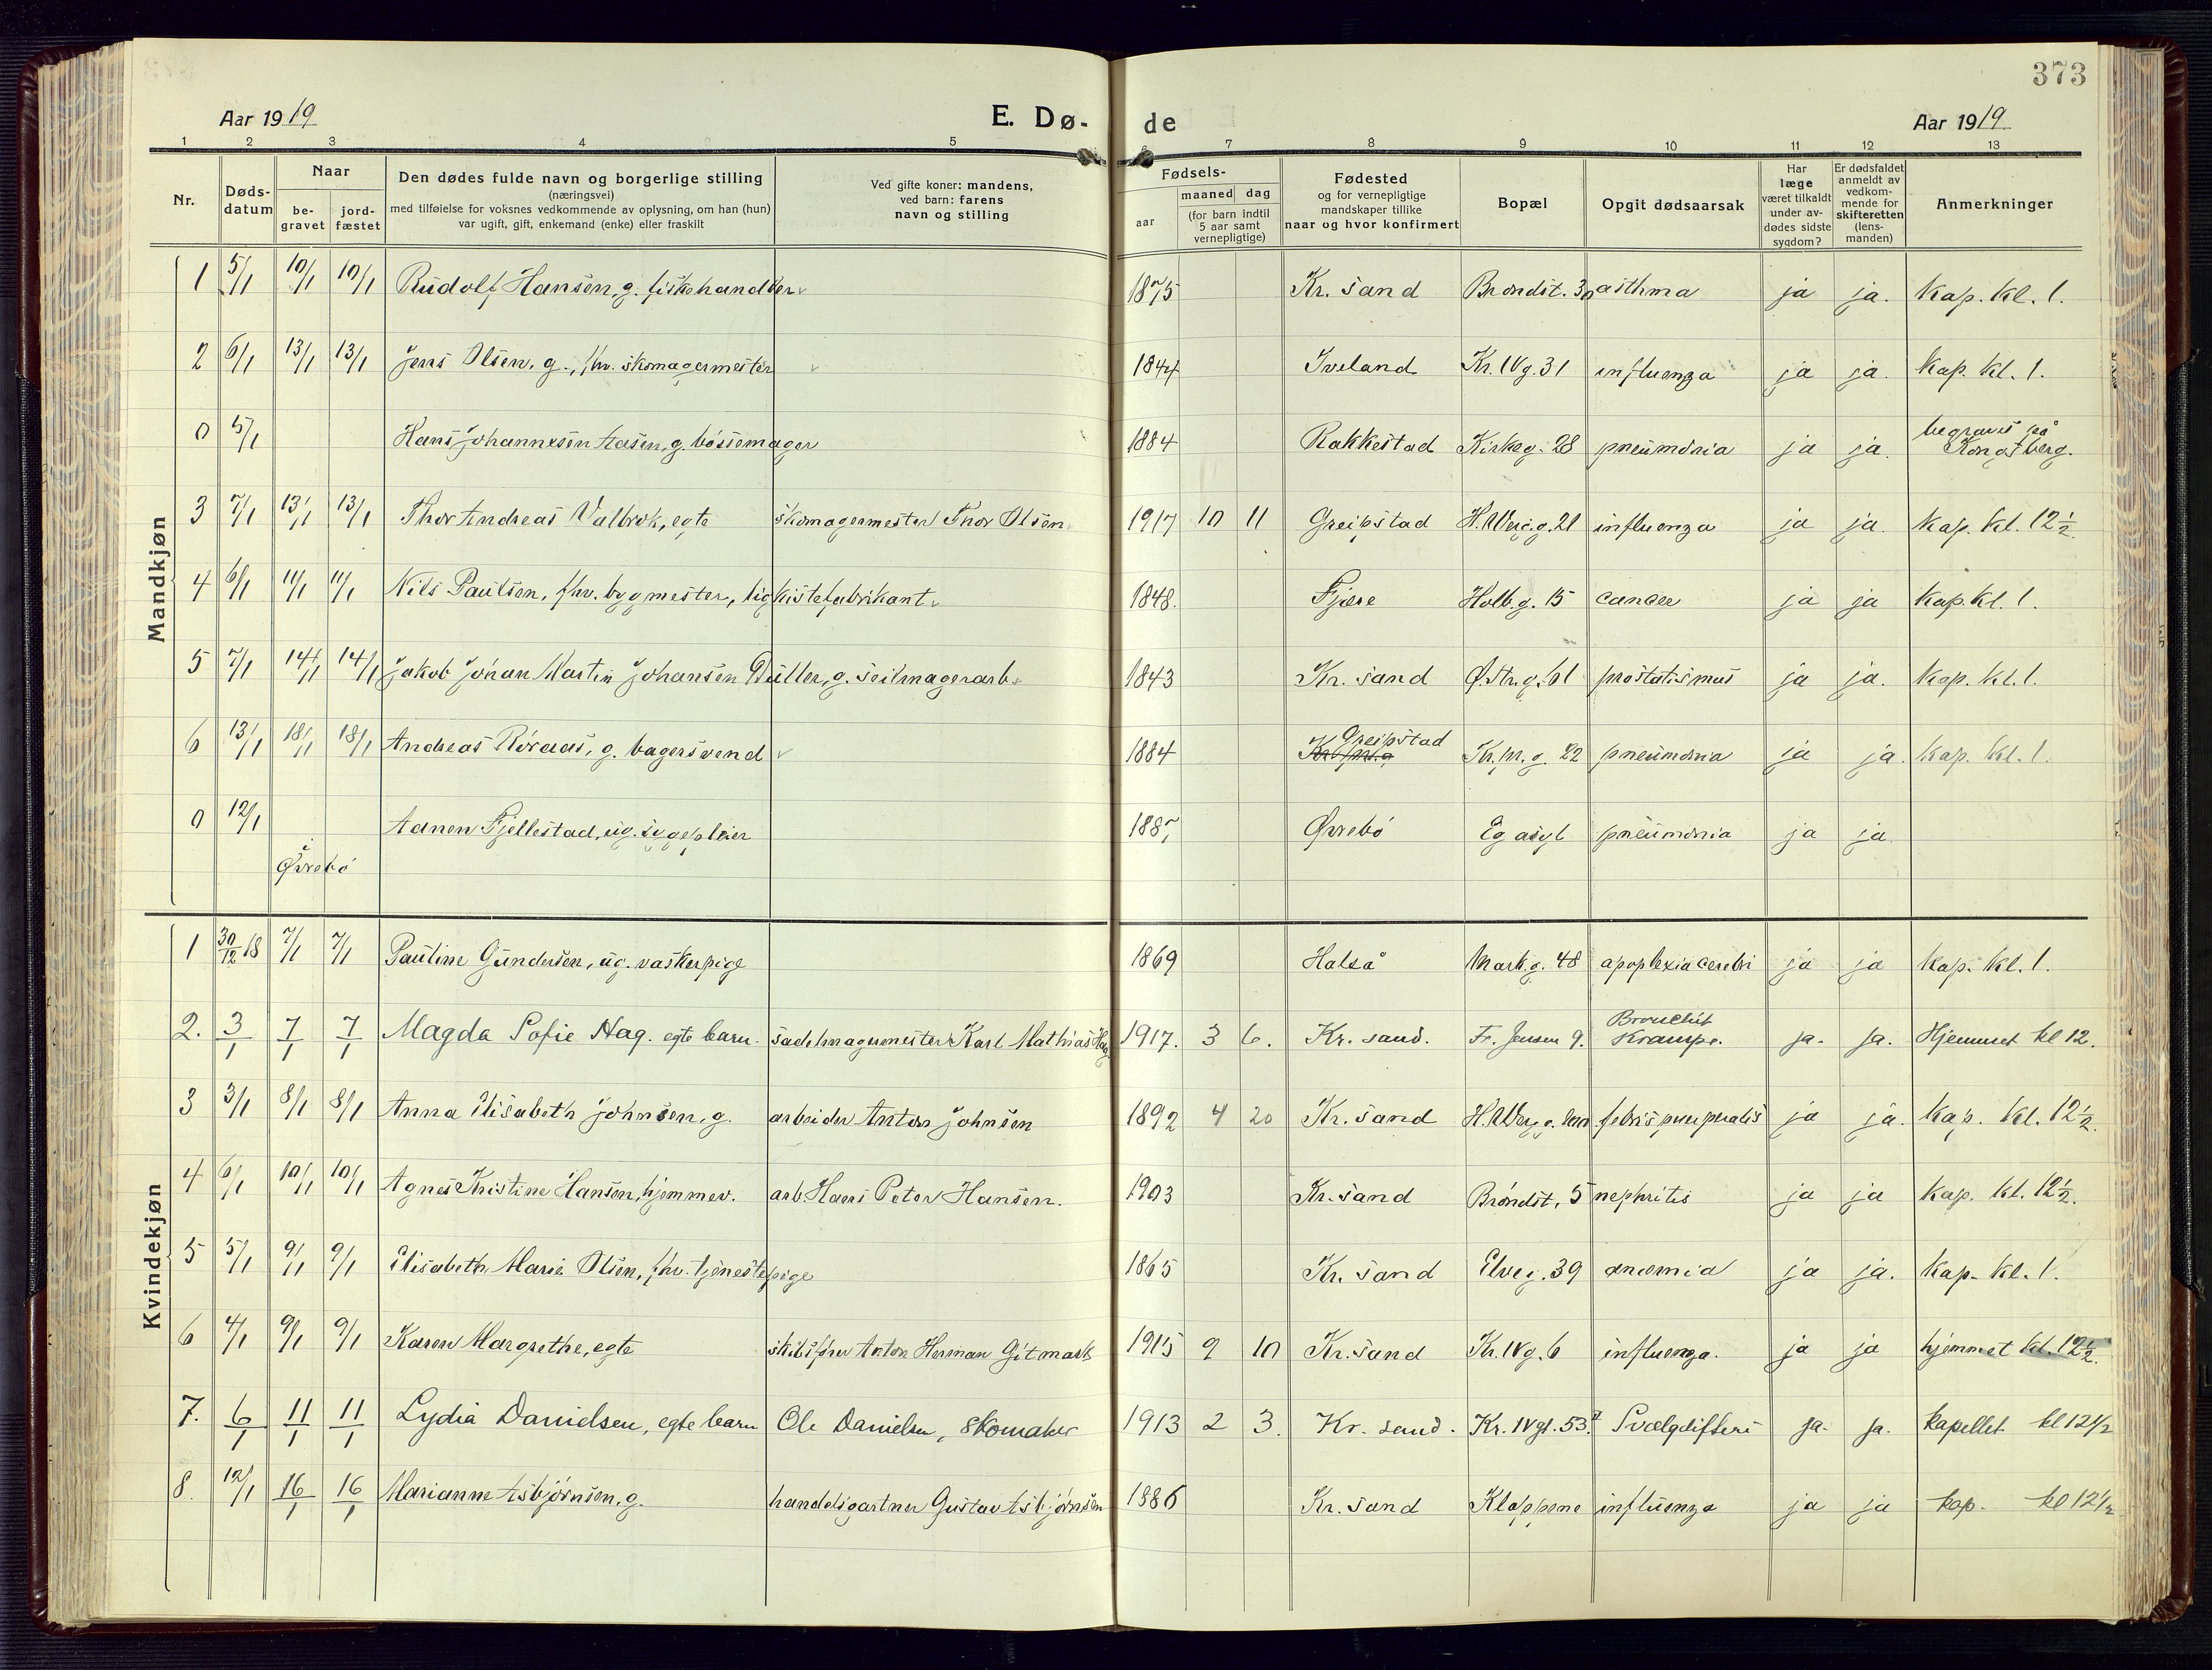 373
Aar 1919
E. Dø-
de
Aar 1919
1 2 3 4 5 6 7 8 9 10 11 12 13
Nr.
Døds-
datum
Naar
be-
gravet
jord-
fæstet
Den dødes fulde navn og borgerlige stilling
(næringsvei)
med tilføielse for voksnes vedkommende av oplysning, om han (hun)
var ugift, gift, enkemand (enke) eller fraskilt
Ved gifte koner: mandens,
ved barn: farens
navn og stilling
Fødsels-
aar
maaned dag
(for barn indtil
5 aar samt
vernepligtige)
Fødested
og for vernepligtige
mandskaper tillike
naar og hvor konfirmert
Bopæl
Opgit dødsaarsak
Har
læge
været tilkaldt
under av-
dødes sidste
sygdom?
Er dødsfaldet
anmeldt av
vedkom-
mende for
skifteretten
(lens-
manden)
Anmerkninger
Mandkjøn
1 5/1 10/1 10/1 Rudolf Hansen, g. fiskehandler 1875 Kr. sand Brøndst. 30 asthma ja ja. Kap. kl. 1.
2 6/1 13/1 13/1 Jens Olsen, g., fhv. skomagermester 1844 Iveland Kr. IVg. 31 influenza ja ja. Kap. kl. 1.
0 5/1 Hans Johannesen Aasen, g. bøssemager 1884 Rakkestad Kirkeg. 28 pneumonia ja ja. begraves på
Kongsberg.
3 7/1 13/1 13/1 Thor Andreas Valbrok, egte skomagermester Thor Olsen 1917 10 11 Greipstad H. Werg.g. 21 influenza ja ja. Kap. kl. 12½.
4 6/1 11/1 11/1 Nils Paulsen, fhv. bygmester, ligkistefabrikant 1848. Fjære Holb.g. 15 cancer ja ja Kap. kl. 1.
5 7/1 14/1 14/1 Jakob Johan Martin Johansen g. seilmagerarb. 1843 Kr. sand Ø. Str.g. 61 prostatismus ja ja. Kap. kl. 1.
6 13/1 18/1 18/1 Andreas Røraas, g. bagersvend 1884 Greipstad Kr.pr.g. 22 pneumonia ja ja. Kap. kl. 1.
0 12/1 Aanen Fjellestad, ug. sygepleier 1887 Øvrebø Eg asyl pneumonia ja ja.
Øvrebø
Kvindekjøn
1 30/12 18 7/1 7/1 Pauline Gundersen, ug. vaskerpige 1869 Halså Mark.g. 48 apoplexia cerebri ja ja Kap. kl. 1.
2. 3/1 7/1 7/1 Magda Sofie Hag. egte barn. sadelmagermester Karl Mathias Hag 1917. 3 6. Kr. sand. Fr. Jensen 9. Bronchit
Krampe. ja. ja. Hjemmet kl 12.
3 3/1 8/1 8/1 Anna Elisabeth Johnsen, g. arbeider Anton Johnsen 1892 4 20 Kr. sand H. Werg.g. febris puerperalis ja ja. Kap. kl. 12½.
4 6/1 10/1 10/1 Agnes Kristine Hansen, hjemmev. arb. Hans Peter Hansen. 1903 Kr. sand Brøndst. 5 nephritis ja ja Kap. kl. 12½.
5 5/1 9/1 9/1 Elisabeth Marie Olsen, fhv. tjenestepige 1865 Kr. sand Elveg. 39 anæmia ja ja. Kap. kl. 1.
6 4/1 9/1 9/1 Karen Margrethe, egte skibsfører Anton Herman Gitmark 1915 9 10 Kr. sand Kr. IVg. 6 influenza. ja ja hjemmet kl. 12½.
7. 6/1 11/1 11/1 Lydia Danielsen, egte barn Ole Danielsen, skomaker 1913 2 3. Kr. sand. Kr. IVgt. 53. Svælgdifteri ja. ja. kapellet kl 12½
8. 12/1 16/1 16/1 Marianne Asbjørnsen, g. handelsgartner Gustav Asbjørnsen 1886 Kr. sand Kloppene influenza ja ja kap. kl 12½